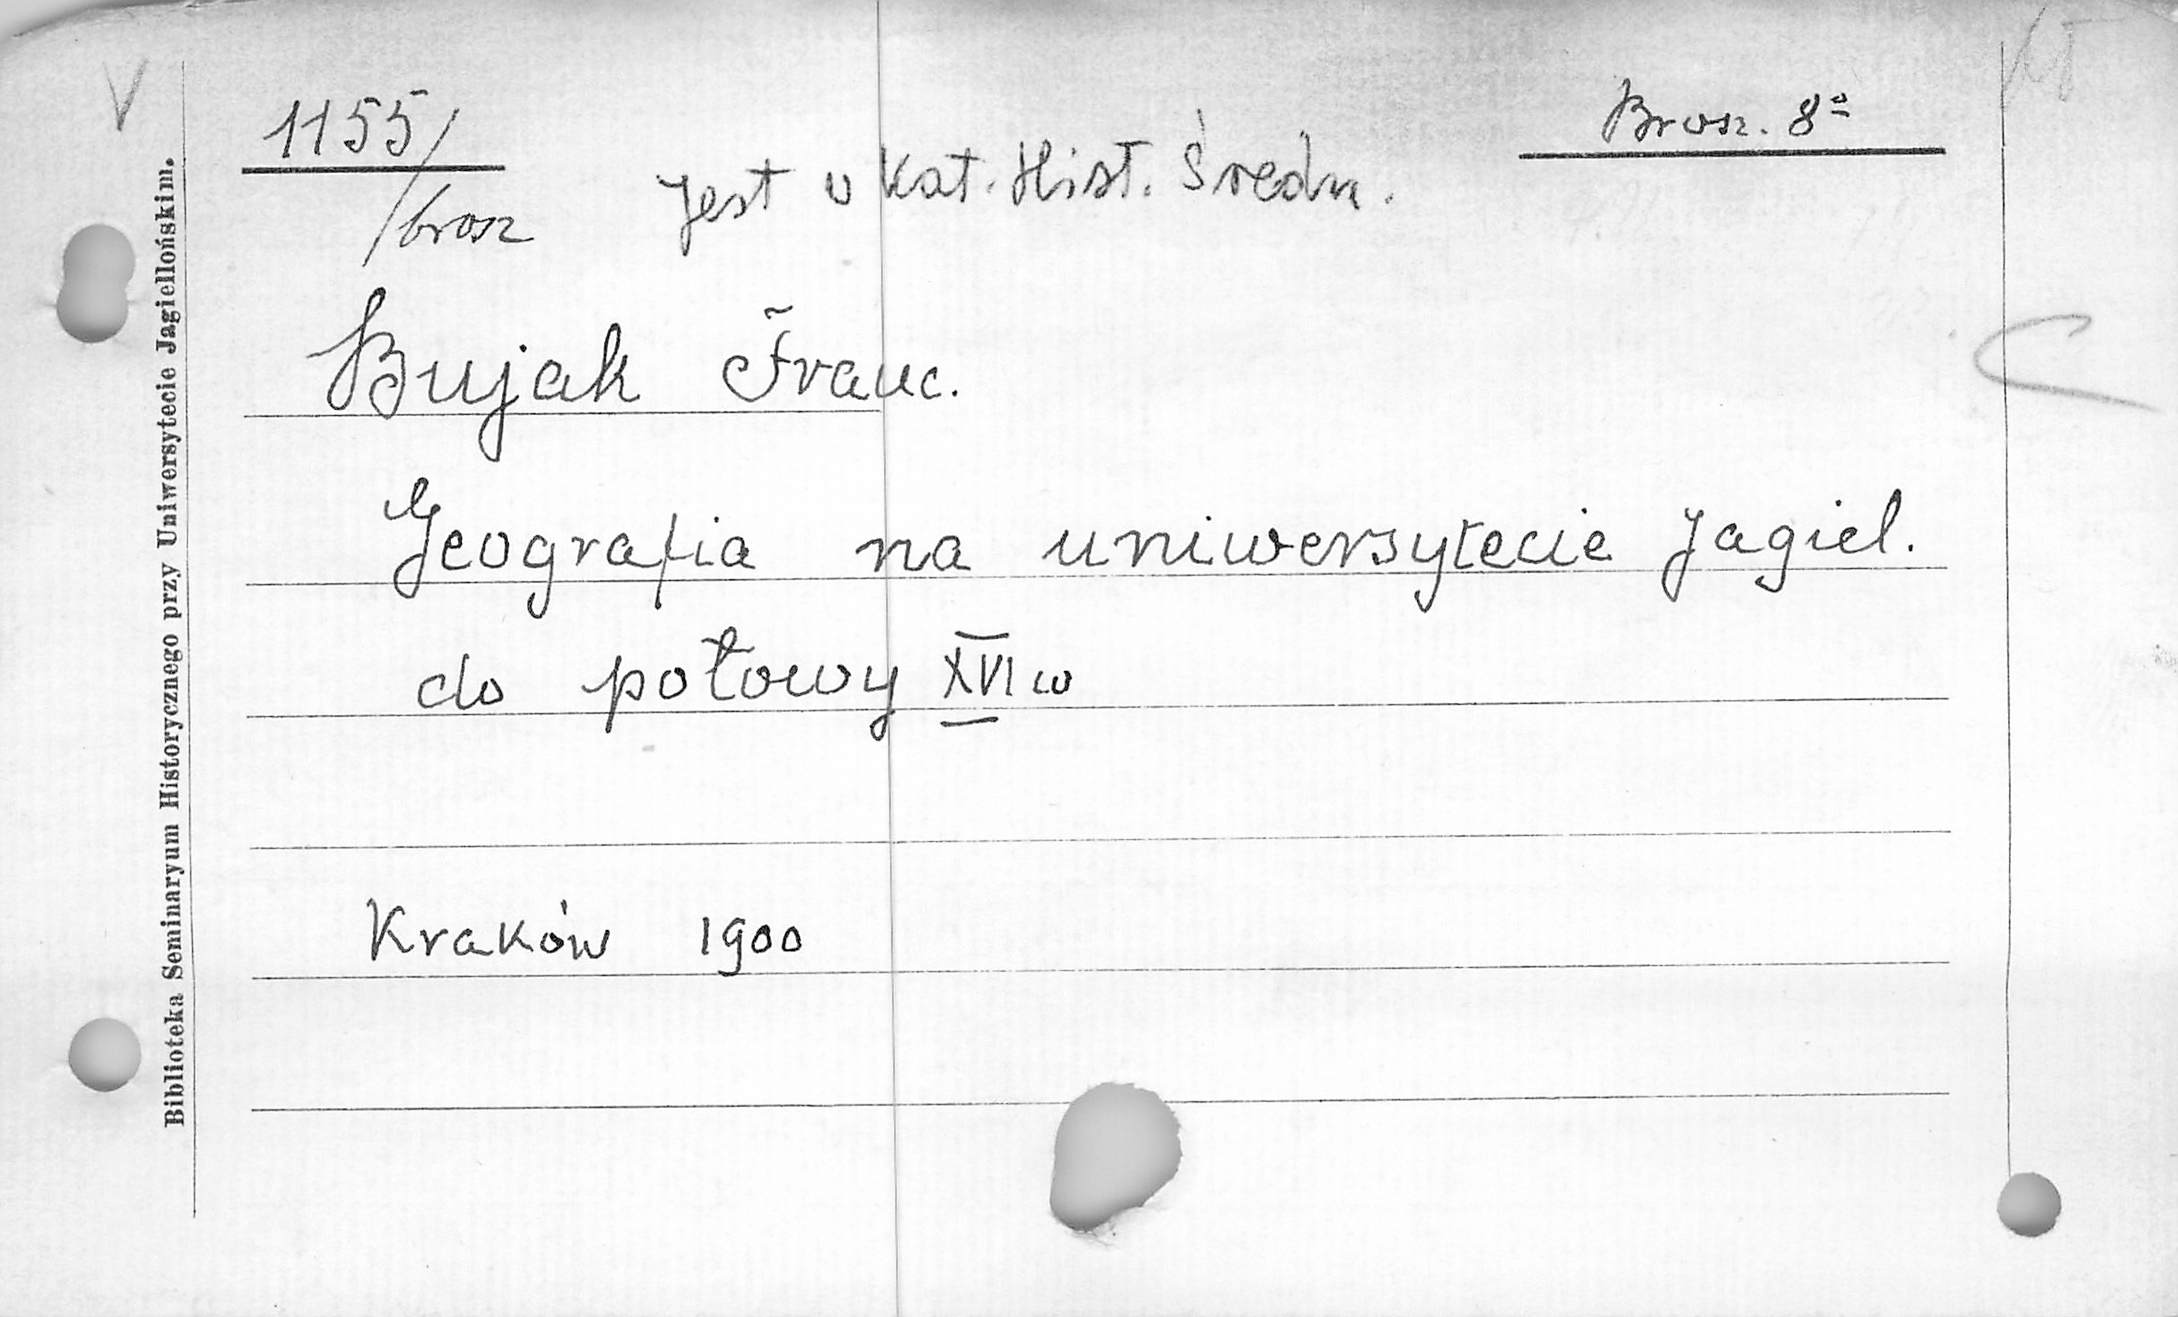 V
1155/
/brosz
Brosz. 8º
Jest w Kat. Hist. Średn.
Bujak Franc.
Geografia na uniwersytecie Jagiel.
do połowy XVI w
Kraków 1900
Biblioteka Seminaryum Historycznego przy Uniwersytecie Jagiellońskim.